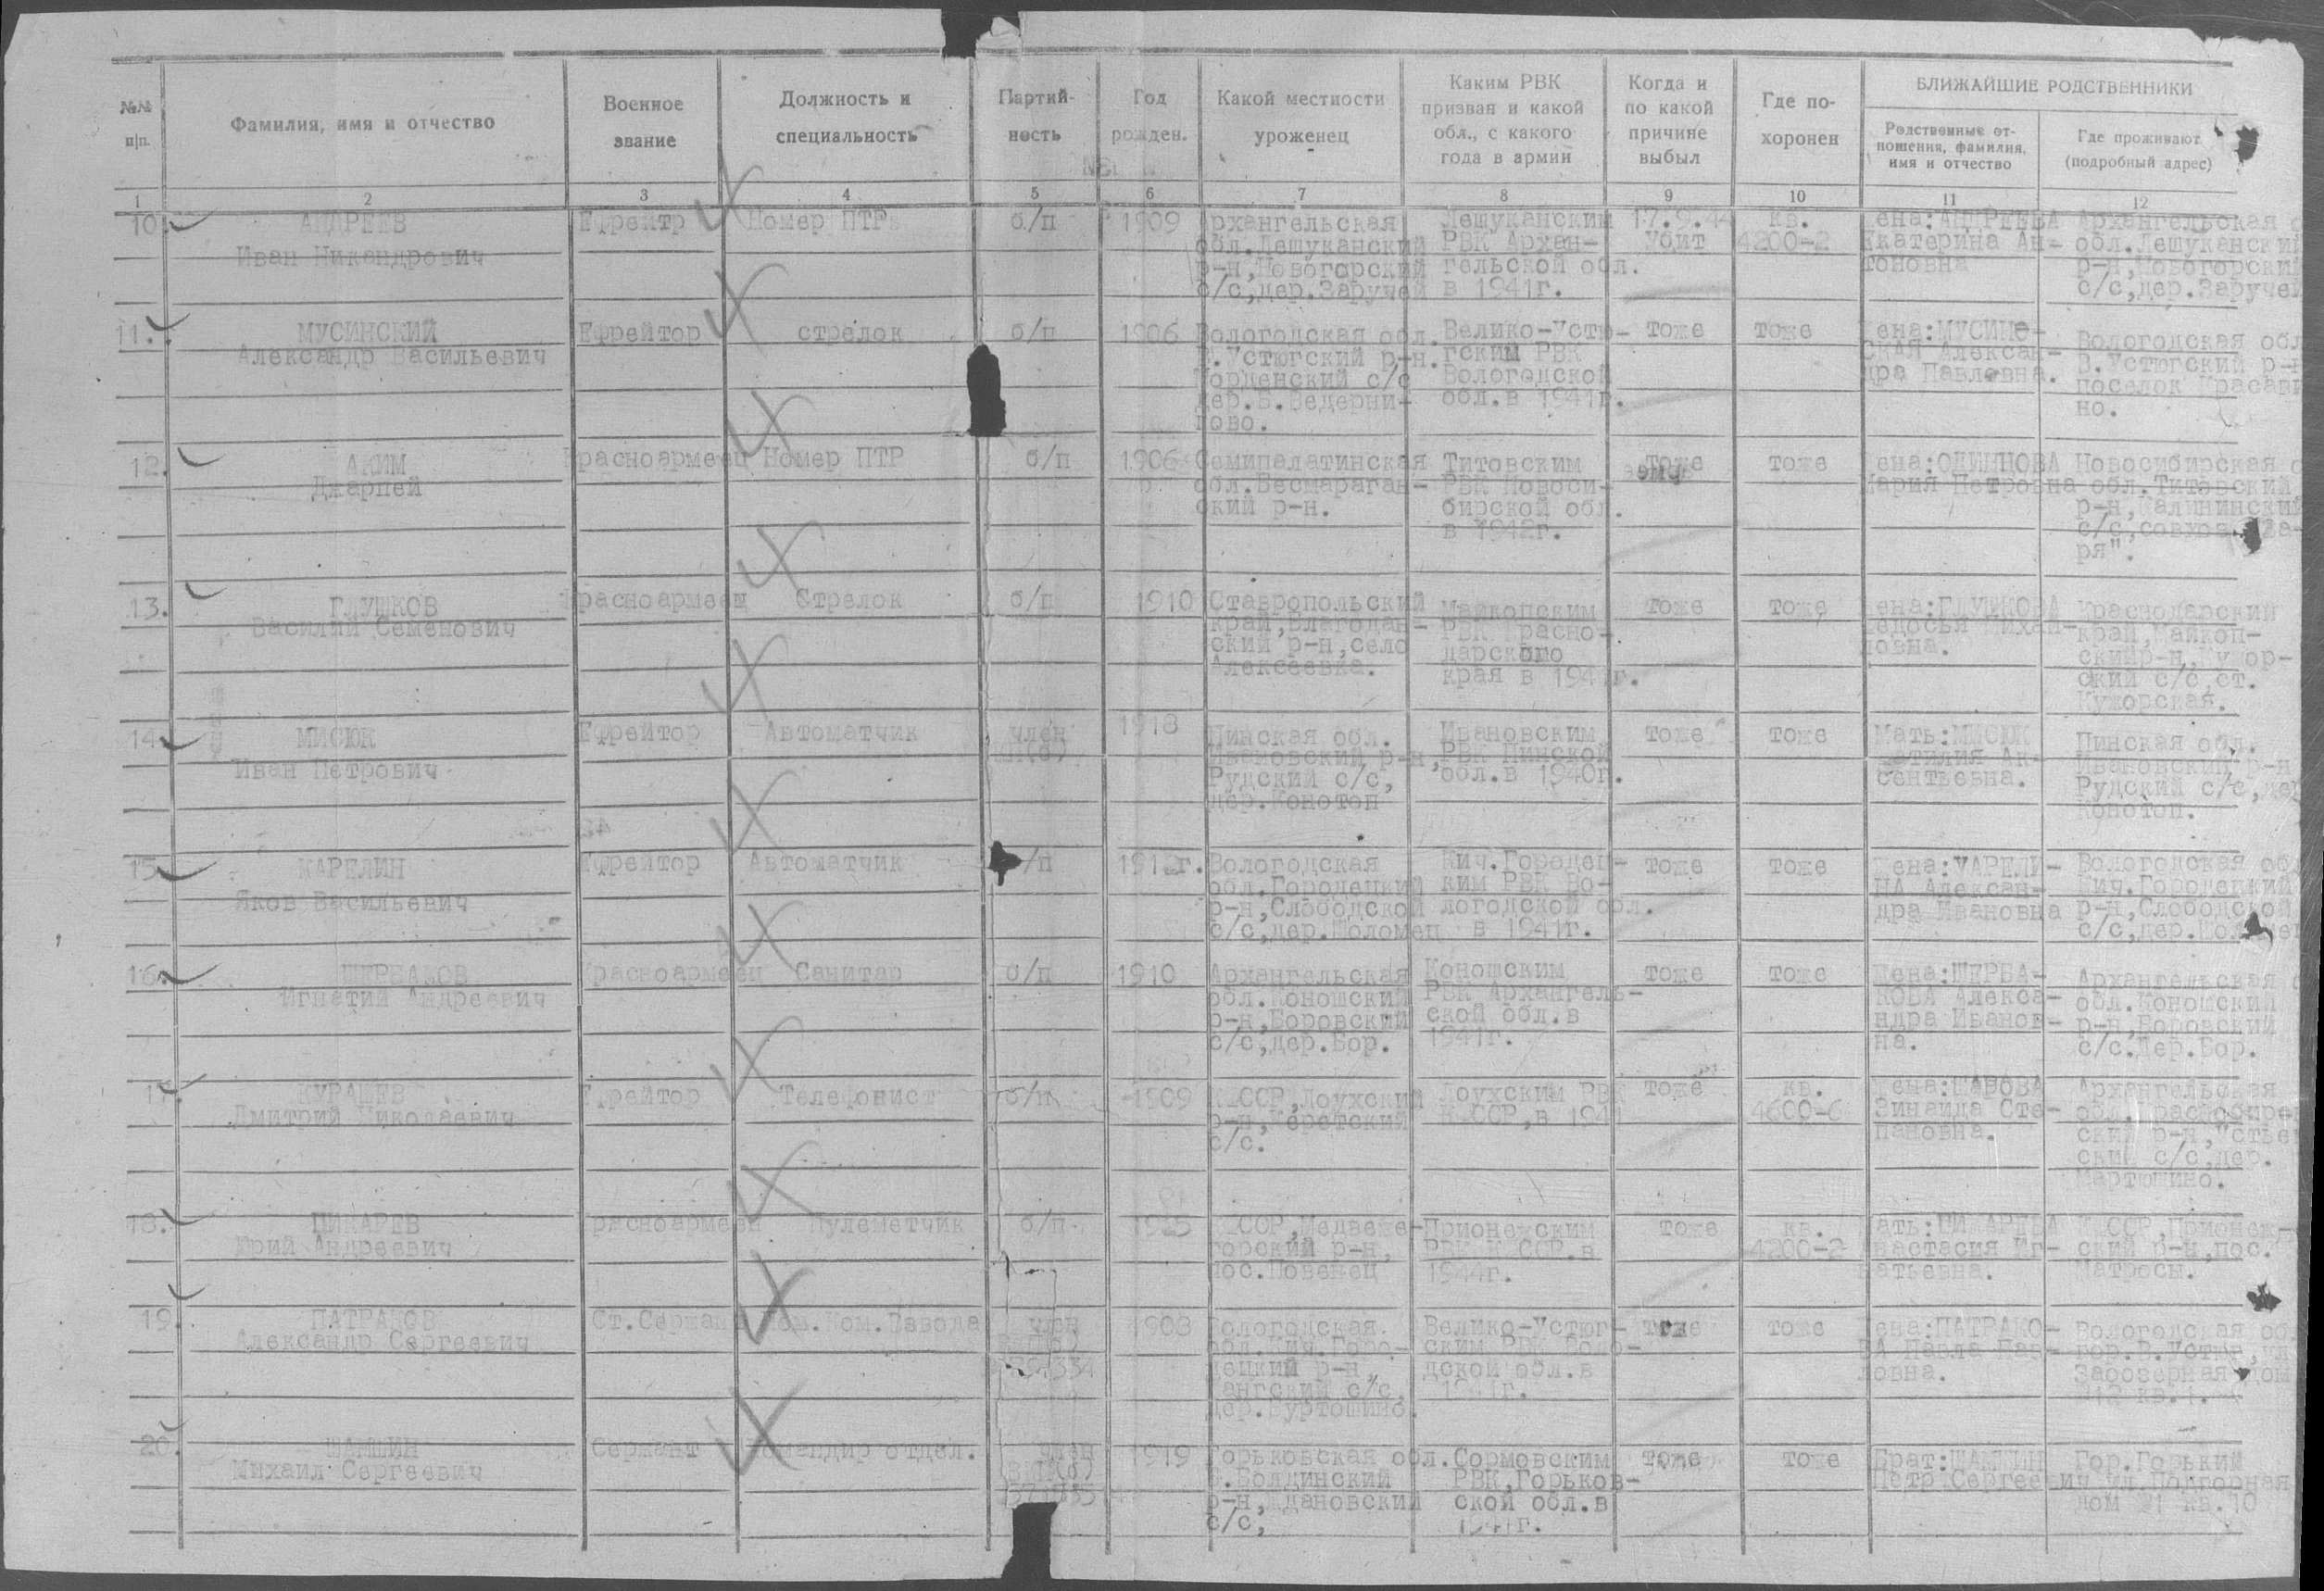 №№ п/п.
Фамилия, имя и отчество
Военное звание
Должность и специальность
Партий-ность
Год рожден.
Какой местности уроженец
Каким РВК призван и какой обл., с какого года в армии
Когда и по какой причине выбыл
Где по-хоронен
БЛИЖАЙШИЕ РОДСТВЕННИКИ
Родственные от-ношения, фамилия, имя и отчество
Где проживают (подробный адрес)
1 2 3 4 5 6 7 8 9 10 11 12
10 АНДРЕЕВ Ефрейтр Номер ПТР б/п 1909 Архангельская Лешуканский 17.9.44 кв. Жена:АНДРЕЕВА Архангельская
Иван Никандрович обл.Лешуканский РВК Архан- Убит 4200-2 Екатерина Ан- обл.Лешуканский
р-н,Новогорский гельской обл. тоновна р-н,Новогорский
с/с,дер.Заручей в 1941г. с/с,дер.Заручей
11. МУСИНСКИЙ Ефрейтор стрелок б/п 1906 Вологодская обл. Велико-Устю- тоже тоже Жена:МУСИНС- Вологодская обл
Александр Васильевич В.Устюгский р-н. гским РВК СКАЯ Алексан- В.Устюгский р-н
с/с Вологодской дра Павловна. поселок Красави
дер.Б.Ведерни- обл.в 1941г. но.
ково.
12. АКИМ Красноармеец Номер ПТР б/п 1906 Семипалатинская Титовским тоже тоже Жена:ОДИНЦОВА Новосибирская
Джарпей обл.Бесмараган- РВК Новоси- Мария Петровна обл.Титовский
ский р-н. бирской обл. р-н,Калининский
в 1942г. с/с,совхоз "За-
ря".
13. ГЛУШКОВ Красноармеец Стрелок б/п 1910 Ставропольский Майкопским тоже тоже Жена:ГЛУШКОВА Краснодарский
Василий Семенович край,Благодан- РВК Красно- Федосья Михай- край,Майкоп-
ский р-н,село дарского ловна. скийр-н,Кужор-
Алексеевка. края в 194 г. ский с/с,ст.
Кужорская.
14 МИСЮК Ефрейтор Автоматчик член 1918 Пинская обл. Ивановским тоже тоже Мать:МИСЮК Пинская обл.
Иван Петрович Ивановский р-н, РВК Пинской Ак- Ивановский р-н
Рудский с/с, обл.в 1940г. сентьевна. Рудский с/с,дер
дер.Конотоп Конотоп.
15 КАРЕЛИН Ефрейтор Автоматчик /п Вологодская Кич.Городец- тоже тоже Жена:КАРЕЛИ- Вологодская обл
Яков Васильевич обл.Городецкий ким РВК Во- НА Алексан- Кич.Городецкий
р-н,Слободской логодской обл. дра Ивановна р-н,Слободской
с/с,дер.Шоломец в 1941г. с/с,дер.
16. ЩЕРБАКОВ Красноармеец Санитар б/п 1910 Архангельская Коношским тоже тоже Жена:ЩЕРБА- Архангельская
Игнатий Андреевич обл.Коношский РВК Архангель- КОВА Алекса- обл.Коношский
р-н,Боровский ской обл.в ндра Иванов- р-н,Боровский
с/с,дер.Бор. 1941г. на. с/с.дер.Бор.
17. КУРАШЕВ Ефрейтор Телефонист б/п 1909 КФССР,Лоухский Лоухским РВК тоже кв. Архангельская
Дмитрий Николаевич р-н,Керетский КФССР,в 194 4600-6 Зинаида Сте- обл.
с/с. пановна. ский р-н,
с/с,дер.
Мартюшино.
18. Красноармеец Пулеметчик б/п 1925 КФССР,Медвеже- Прионежским тоже кв. Мать: КФССР,Прионеж-
Юрий Андреевич горский р-н, РВК КФССР.в 4200-2 Анастасия Иг- ский р-н,пос.
пос.Повенец 1944г. натьевна. Матросы.
19. ПАТРАКОВ Ст.Сержант Пом.Ком.Взвода член 1908 Вологодская Велико-Устюг- тоже тоже Жена:ПАТРАКО- Вологодская об
Александр Сергеевич обл.Кич.Горо- ским РВК Воло- ВА Павла Пав- гор.В.Устюг,ул
децкий р-н, дской обл.в ловна. Заозерная дом
с/с, 1941г. №12 кв.1.
дер.Буртошино.
20. ШАМШИН Сержант Командир отдел. член 1919 Горьковская обл. Сормовским тоже тоже Брат:ШАМШИН Гор.Горький
Михаил Сергеевич ВКП(б) Б.Болдинский РВК,Горьков- Петр Сергеевич ул.Подгорная
р-н, ской обл.в дом №1 кв.10
с/с, 1941г.